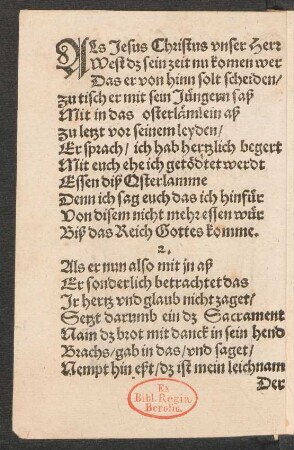 Als Jesus Christus vnser Herr
West dz sein zeit nu komen wer
Das er von hinn solt scheiden/
zu tisch er mit sein Jüngern saß
Mit in das osterlämlein aß
zu letzt vor seinem leyden/
Er sprach/ ich hab hertzlich begert
Mit euch ehe ich getödtet werdt
Essen diß Osterlamme
Denn ich sag euch das ich hinfür
Von disem nicht mehr essen würr
Biß das Reich Gottes komme.
2.
Als er nun also mit jn aß
Er sonderlich betrachtet das
Ir hertz vnd glaub nicht zaget/
Setzt darumb ein dz Sacrament
Nam dz brot mit danck in sein hend
Brachs/ gab in das/ vnd saget/
Nempt hin est/ dz ist mein leichnam
Der
Ex
Bibl. Regia
Berolin.